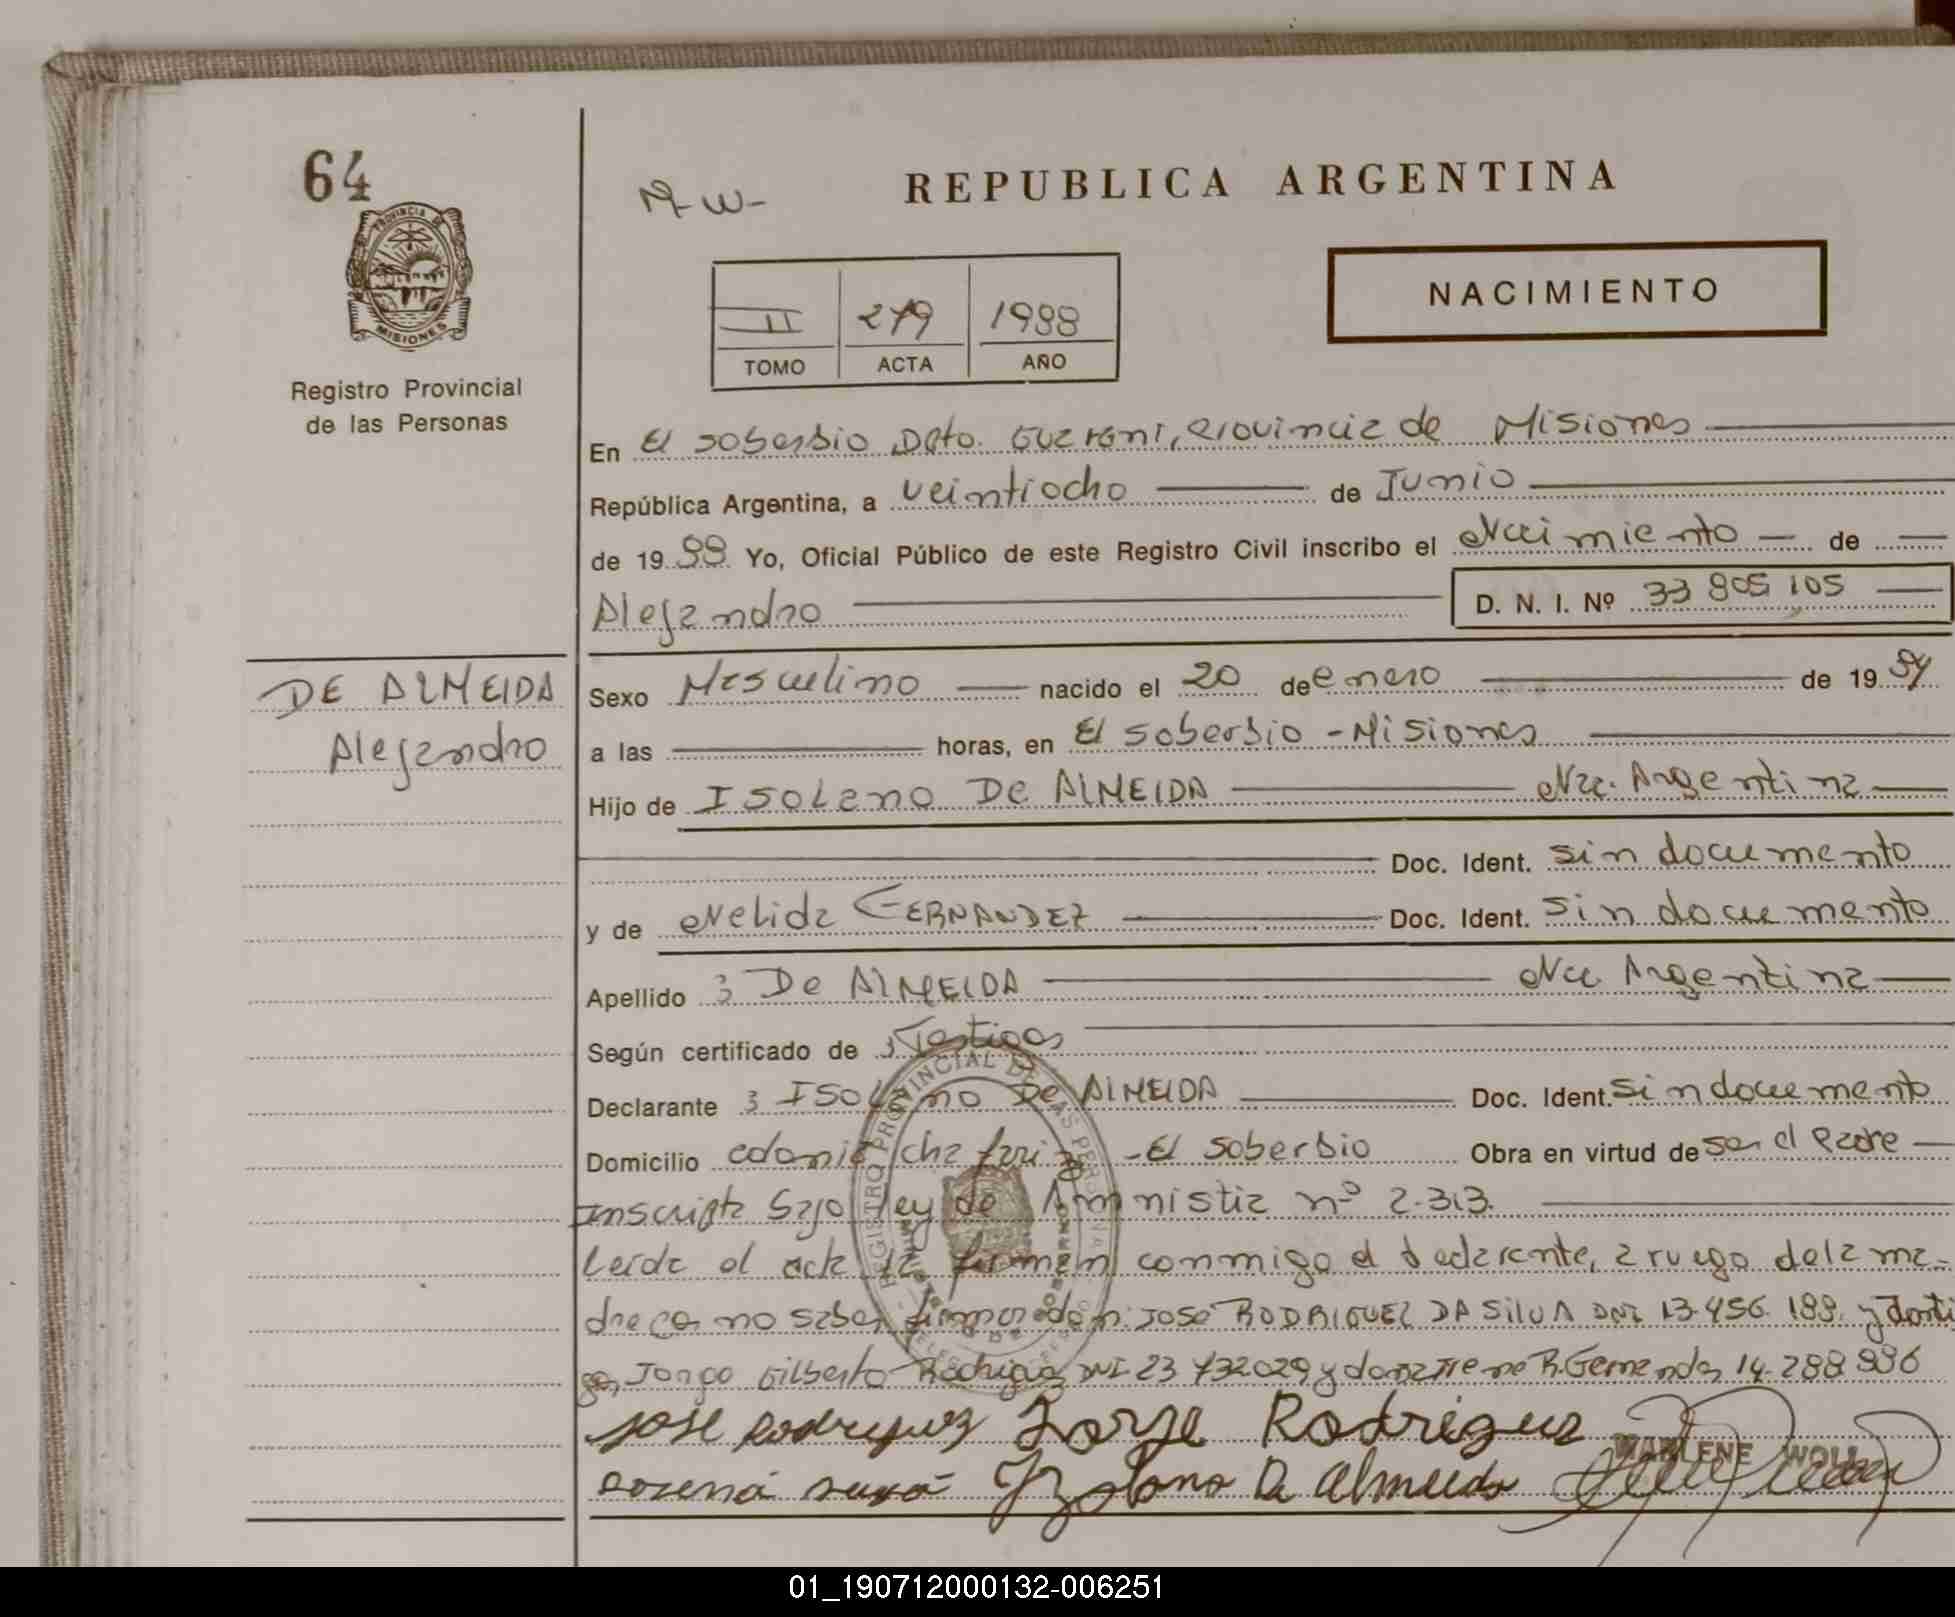 64
PROVINCIA DE
MISIONES
Registro Provincial
de las Personas
M-W-
REPUBLICA ARGENTINA
NACIMIENTO
II 279 1988
TOMO ACTA AÑO
En El Soberbio Dpto. Guarani, Provincia de Misiones
República Argentina, a veintiocho de Junio
de 19 88 Yo, Oficial Público de este Registro Civil inscribo el Nacimiento de
Alejandro
D. N. I. Nº 33 805 105
DE ALMEIDA
Alejandro
Sexo Masculino nacido el 20 de enero de 19
a las horas, en El Soberbio - Misiones
Hijo de ISOLANO De ALMEIDA Nac. Argentina
Doc. Ident. sin documento
y de Nelida FERNANDEZ Doc. Ident. sin documento
Apellido De ALMEIDA Nac Argentina
Según certificado de Testigos
Declarante Isolano De ALMEIDA Doc. Ident. sin documento
Domicilio colonia chafariz - El Soberbio Obra en virtud de ser el Padre
Inscripta bajo ley de Amnistia nº 2.313.
Leida el acta la firman conmigo el declarante, a ruego de la ma-
dre por no saber firmar don: JOSÉ RODRIGUEZ DA SILVA DNI 13.456.188. y testi
gos Jorge Gilberto Rodriguez DNI 23 732029 y doña 14.288 886
REGISTRO PROVINCIAL DE LAS PERSONAS
Jose Rodriguez Jorge Rodriguez
MARLENE WOLL
Yzolano De Almeida
01_190712000132-006251